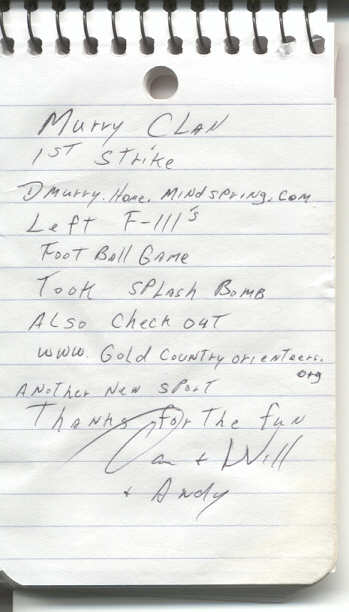 Murry CLAN
1ST Strike
Dmurry.Home.Mindspring.com
Left F-111's
FootBall GAME
Took SPLash BomB
ALSo check out
www.Gold Country orienteers.
org
ANother New SPort
Thanks for The fun
Dan + Will
+ Andy